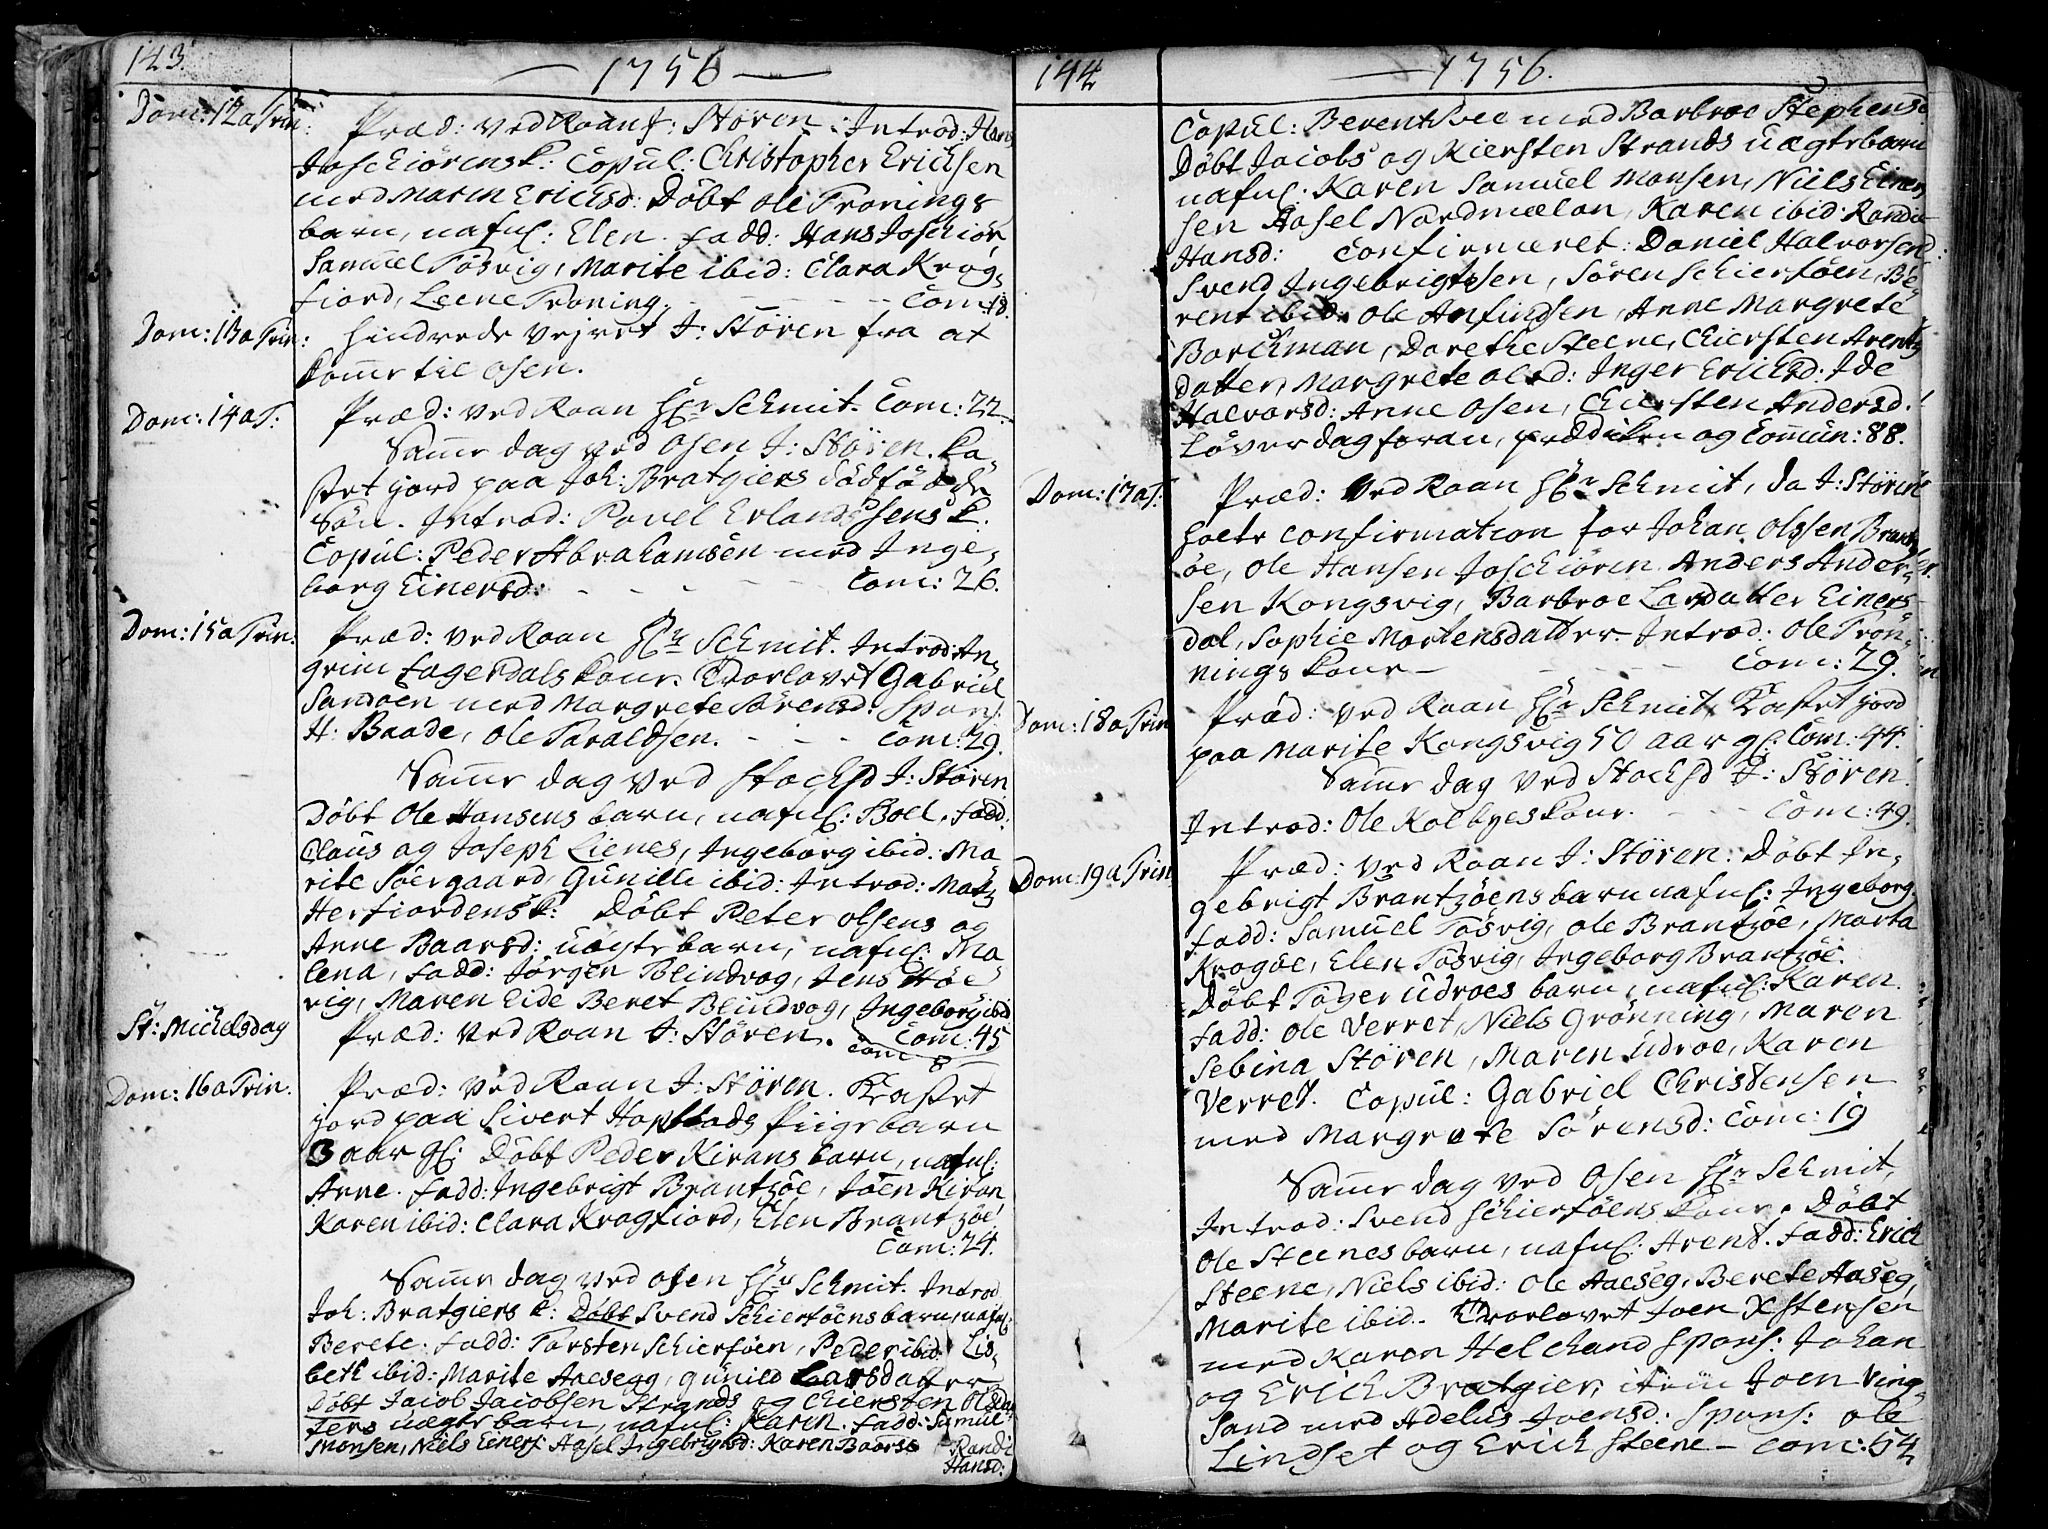 143.
— 1756 —
Dom: 12 a Trin: Præd: ved Roan J: Stören. Introd: Hans
Joschiörens k: Copul: Christopher Erichsen
med Marin Erichsd: Döbt Ole Tronings
barn, nafnl: Elen. Fadd: Hans Joschiör
Samuel Tösvig, Marite ibid: Clara Krog-
fiord, Leene Troning. Com: 18.
Dom: 13 a Trin: hindrede vejret J: Stören fra at
komme til Osen.
Dom: 14 a T: Præd: ved Roan Hr Schmit. Com: 22.
Samme dag ved Osen J: Stören. Ka-
stet jord paa Joh: Bratgiers dödfödde
Sön. Introd: Povel Erlandsens k.
Copul: Peder Abrahamsen med Inge-
borg Einersd: - - - Com: 26.
Dom: 15 a Trin: Præd: ved Roan Hr Schmit. Introd: An-
grim Fagerdals kone. Trorlovet Gabriel
Sandöen med Margrete Sörensd: Spons:
H: Baade, Ole Taraldsen. - - - Com: 29.
Samme dag ved Stocksd J: Stören
Döbt Ole Hansens barn, nafnl: Boel. Fadd:
Claus og Joseph Lienes, Ingeborg ibid: Ma-
rite Söergaard, Gunille ibid: Introd: Matz
Herfiordens k: Döbt Peter Olsens og
Anne Baarsd: uægte barn, nafnl: Ma-
lena, Fadd: Jörgen Blindvog, Jens Höe-
vig, Maren Eide Beret Blindvog, Ingeborg ibid
Com: 45
St: Michelsdag Præd: ved Roan J: Stören. Com 8
Dom: 16 a Trin. Præd: ved Roan J: Stören. Kastet
jord paa Sivert Hopstads Piigebarn
3 aar gl: Döbt Peder Kirans barn, nafnl:
Anne. Fadd: Ingebrigt Brantzöe, Joen Kiran
Karen ibid: Clara Krogfiord, Elen Brantzöe
Com: 24.
Samme dag ved Osen Hr Schmit. Introd
Joh: Bratgiers k: Döbt Svend Schiersöens barn, nafnl:
Berete. Fadd: Torsten Schiersöen, Peder ibid: Lis-
beth ibid: Marite Aasegg, Gunild Larsdatter
Döbt Jacob Jacobsen Strands og Chiersten Olsdat-
ters uægte barn, nafnl: Karen. Fadd: Samul
Monsen, Niels Einers: Aasel Ingebrigtsd: Karen Baarsd Randi
Hansd:
144
— 1756.
Copul: Berent Svee med Barbroe Stephensd
Döbt Jacobs og Kiersten Strands uægte barn
nafnl: Karen Samuel Monsen, Niels Einer-
sen Aasel Nordmælan, Karen ibid: Randi
Hansd: Confirmeret: Daniel Halvorsen
Svend Ingebrigtsen, Sören Schiersöen, Be-
rent ibid. Ole Anfindsen, Anne Margrete
Borchman, Dorethe Steene, Chiersten Arentz
datter, Margrete Olsd: Inger Erichsd: Ide
Halvorsd: Anne Osen, Chiersten Andersd.
Löverdag foran, prædiken og Commun: 88.
Dom: 17 a T. Præd: ved Roan Hr Schmit, da J: Stören
holte confirmation for Johan Olssen Brantz-
öe, Ole Hansen Joschiören Anders Ander-
sen Kongsvig, Barbroe Larsdatter Einers-
dal, Sophie Mortensdatter. Introd: Ole Trön-
nings kone - - - Com: 29.
Dom: 18 a Trin Præd: ved Roan Hr Schmit. Kastet jord
paa Marite Kongsvig 50 aar gl: Com: 44.
Samme dag ved Stocksd J: Stören.
Introd: Ole Kolbyes kone. - - Com: 49.
Dom: 19 a Trin Præd: ved Roan J: Stören: Döbt In-
gebrigt Brantzöens barn nafnl: Ingeborg
Fadd: Samuel Tösvig, Ole Brantzöe, Marta
Krogöe, Elen Tösvig, Ingeborg Brantzöe.
Döbt Töger Udroes barn, nafnl: Karen.
Fadd: Ole Verret, Niels Grönning, Maren
Sebina Stören, Maren Udroe, Karen
Verret. Copul: Gabriel Christensen
med Margrete Sörensd: Com: 19
Samme dag ved Osen Hr Schmit,
Introd: Svend Schiersöens kone. Döbt
Ole Steenes barn, nafnl: Arent. Fadd: Erich
Steene, Niels ibid: Ole Aaseg, Berete Aaseg,
Marite ibid. Trorlovet Joen Xstensen
med Karen Helchand Spons: Johan
og Erich Bratgier, item Joen Ving-
sand med Adelus Joensd: Spons: Ole
Lindset og Erich Steene - Com: 54